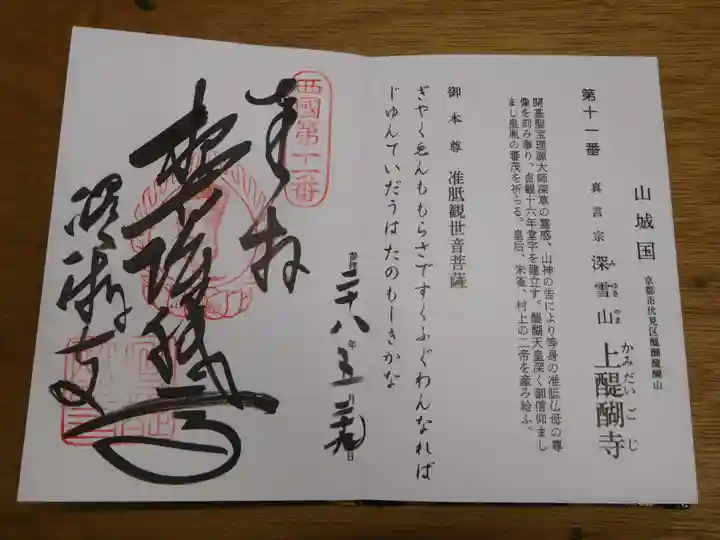 山城国
京都市伏見区醍醐醍醐山
第十一番
真言宗
深雪山
ゆきやま
上醍醐寺
かみだいごじ
開基聖宝理源大師深草の霊感、山神の告により等身の准胝仏母の尊
像を刻み奉り、貞観十六年堂宇を建立す。醍醐天皇深く御信仰まし
まし皇胤の蕃茂を祈らる。皇后、朱雀、村上の二帝を産み給ふ。
御本尊 准胝観世音菩薩
ぎやくゑんももらさですくふぐわんなれば
じゆんていだうは たのもしきかな
西國第十一番
奉拝
醍醐寺
二十八年五月
日